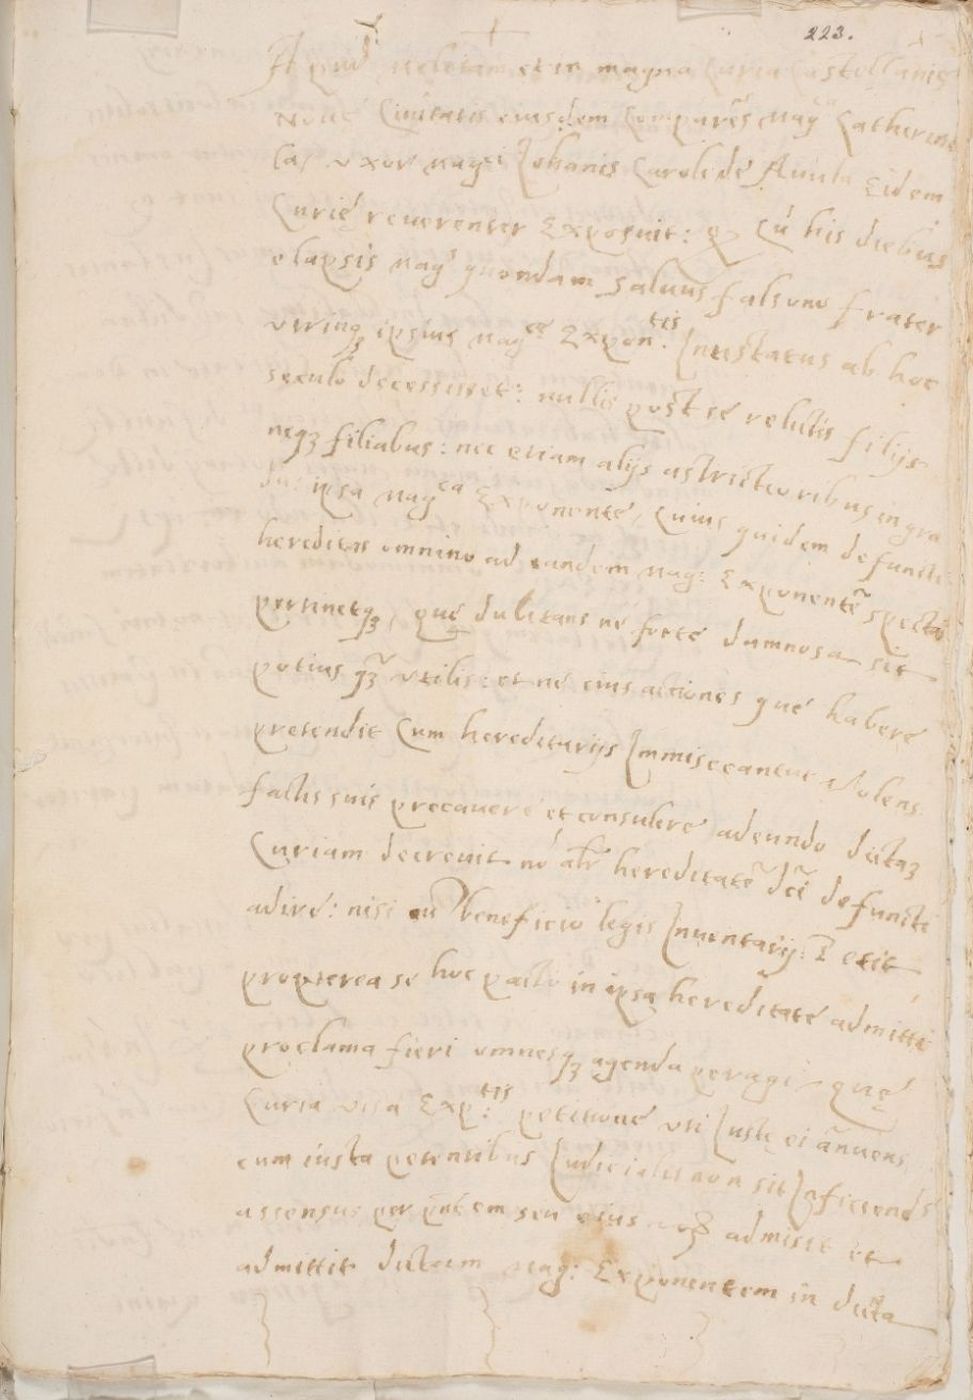 223.
Apud melitam et in magna Curia Castellanie
Noue Ciuitatis eiusdem Comparēs Mag.ca Catherina
uxor mag.ci Johanis Caroli de Auula Eidem
Curię reuerenter Exposuit: q Cū his diebus
elapsis mag.s quondam Saluus falsono frater
utrinq; ipsius mag.ce Expon.tis Intestatus ab hoc
seculo decessisset: nullis post se relictis filijs
neq; filiabus: nec etiam alijs astrictioribus in gra
du: ipsa mag.ca Exponente, Cuius quidem defuncti
hereditas omnino ad eandem mag: Exponentē spectat
pertinetq;, quę dubitans ne forte damnosa sit
potius q̃; utilis: et ne eius actiones que habere
pretendit Cum hereditarijs Immisceantur Volens
factis suis precauere et consulere adeundo dicta;
Curiam decreuit nō alr̃ hereditatē dc̃i defuncti
adire: nisi cū beneficio legis Inuentarij: Petit
propterea se hoc pacto in ipsa hereditate admitti
proclama fieri omnesq; agenda peragi quę
Curia uisa Exp:tis petitione uti Juste ei añuens
cum iusta petentibus Judicialis non sit
assensus per pñtem seu eius admisit et
admittit dictam mag: Exponentem in dicta